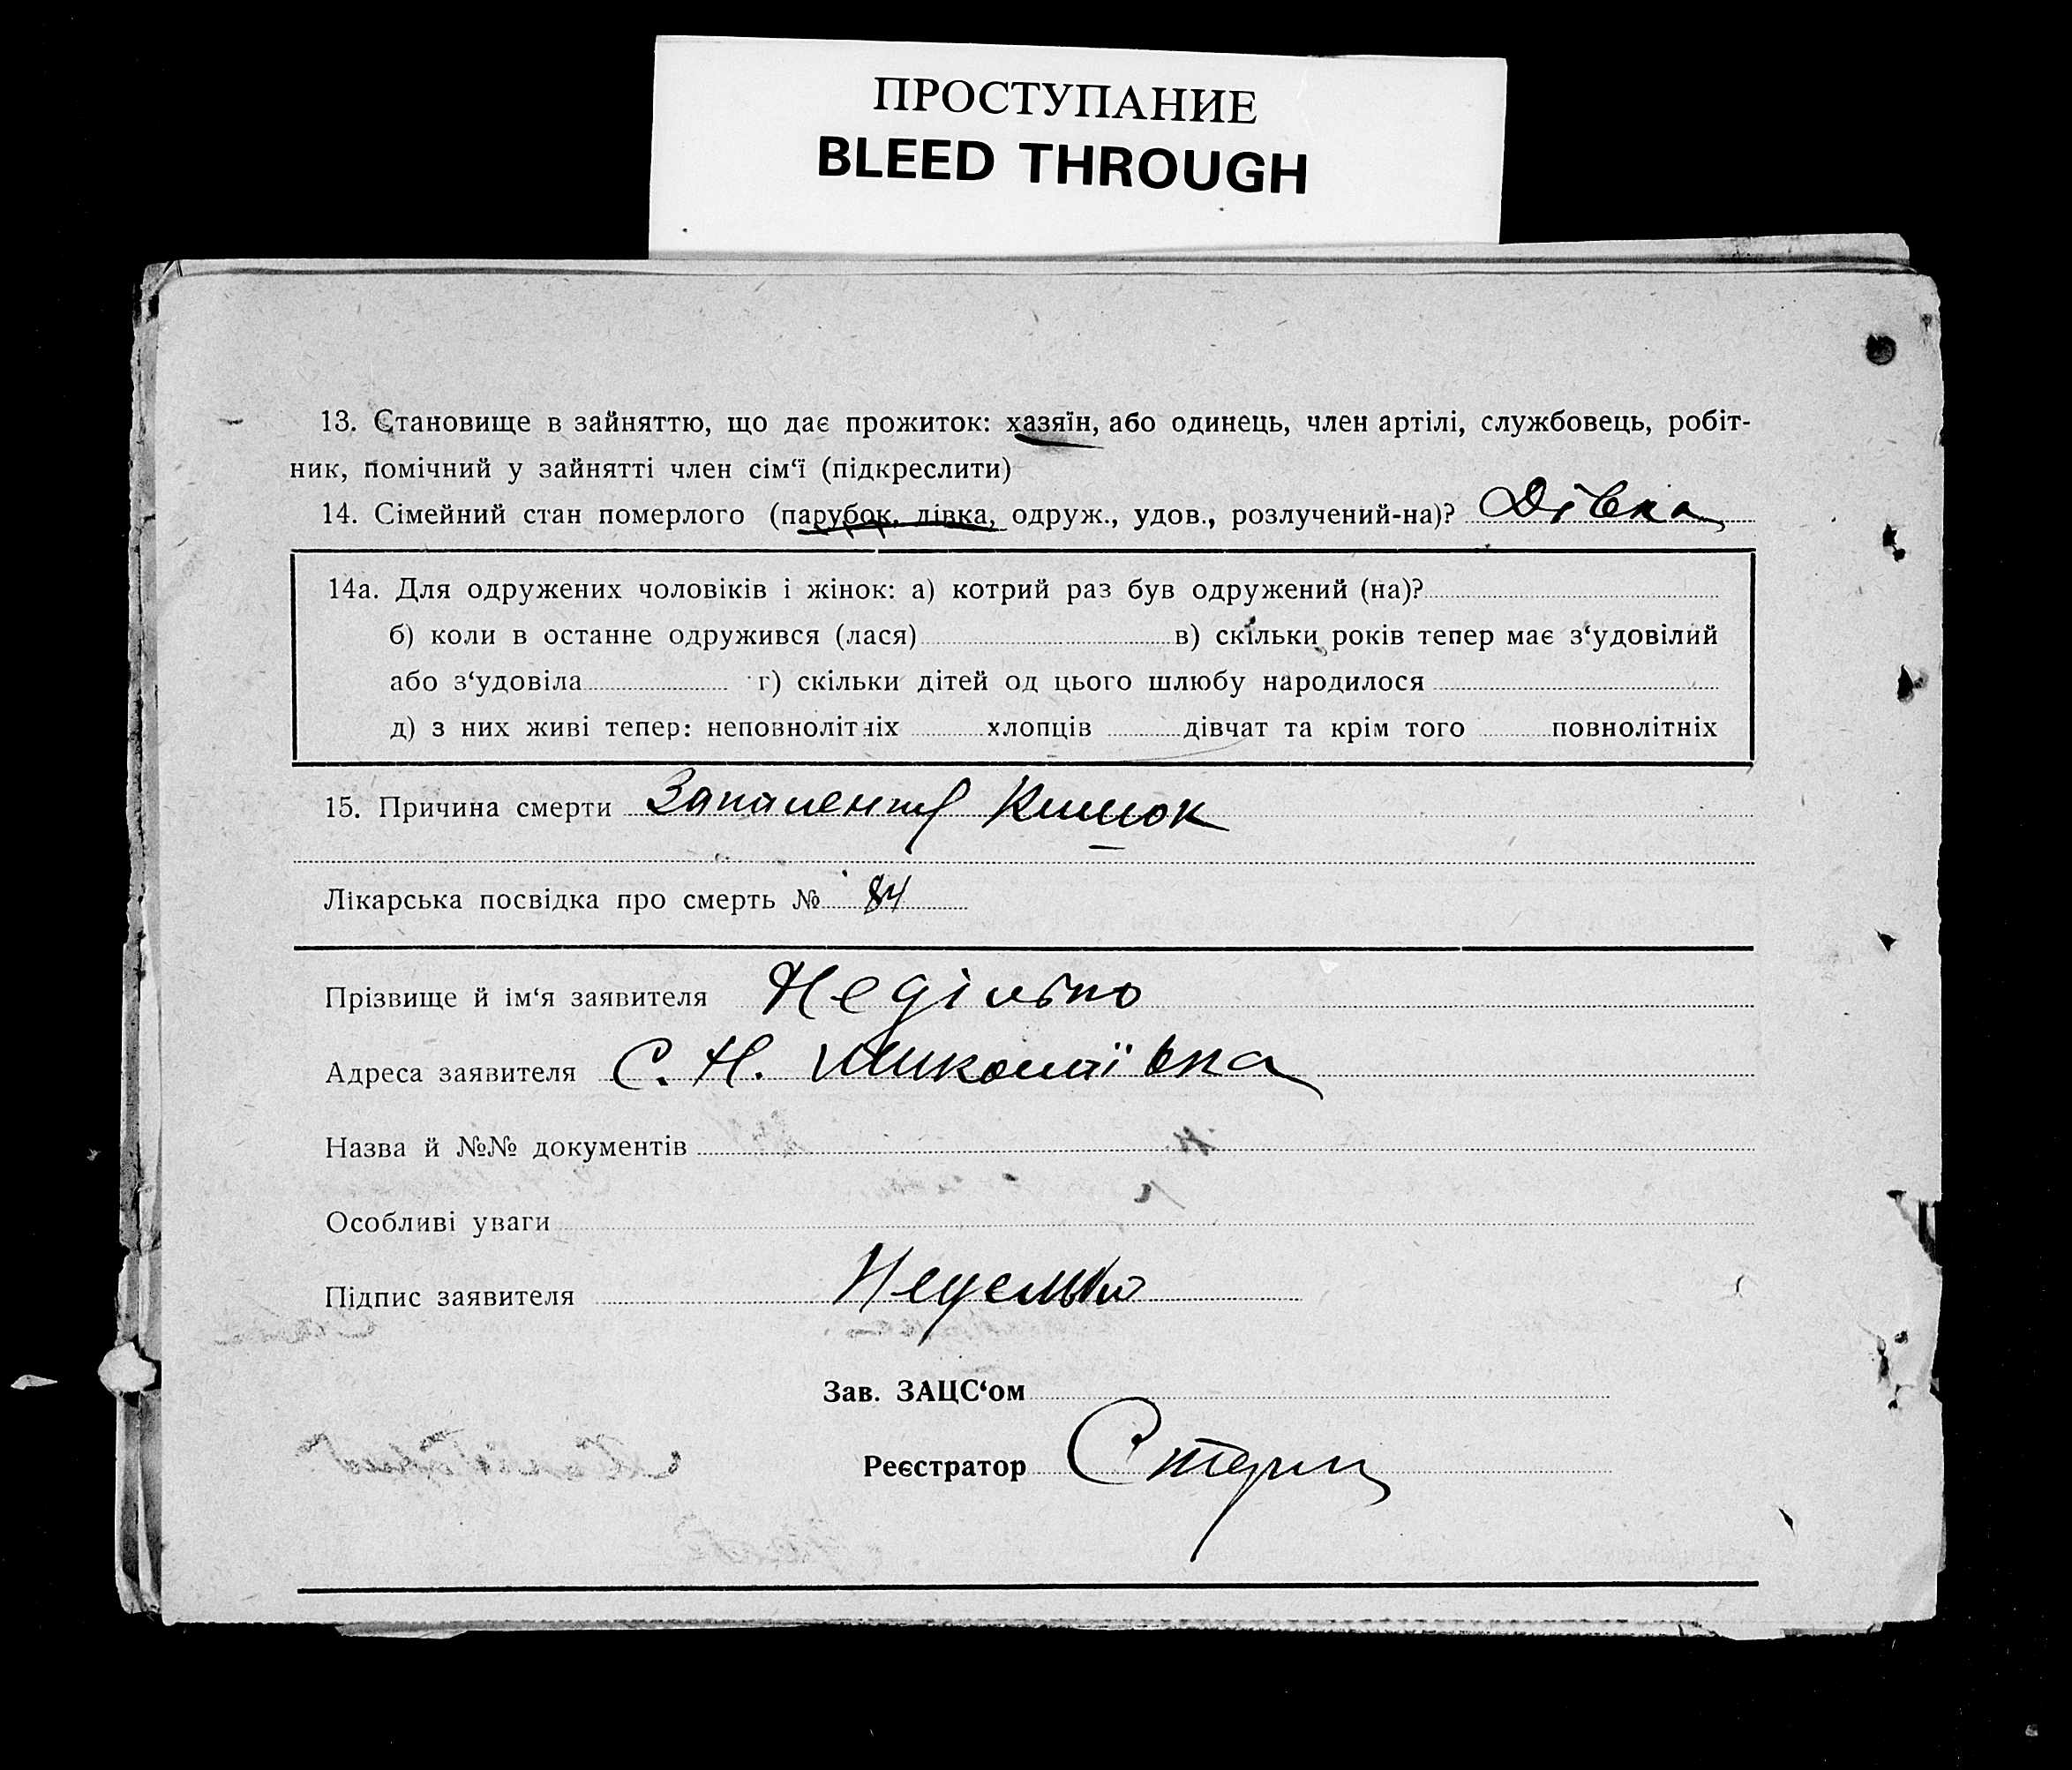 ПРОСТУПАНИЕ
BLEED THROUGH
13. Становище в зайняттю, що дає прожиток: хазяїн, або одинець, член артілі, службовець, робіт-
ник, помічний у зайнятті член сім‘ї (підкреслити)
14. Сімейний стан померлого (парубок, дівка, одруж., удов., розлучений-на)? Дівка
14а. Для одружених чоловіків і жінок: а) котрий раз був одружений (на)?
б) коли в останне одружився (лася) в) скільки років тепер має з‘удовілий
або з‘удовіла г) скільки дітей од цього шлюбу народилося
д) з них живі тепер: неповнолітніх хлопців дівчат та крім того повнолітніх
15. Причина смерти Запалення Кишок
Лікарська посвідка про смерть № 84
Прізвище й ім‘я заявителя Неділько
Адреса заявителя С. Н. Миколаївка
Назва й №№ документів
Особливі уваги
Підпис заявителя Неделько
Зав. ЗАЦС‘ом
Реєстратор